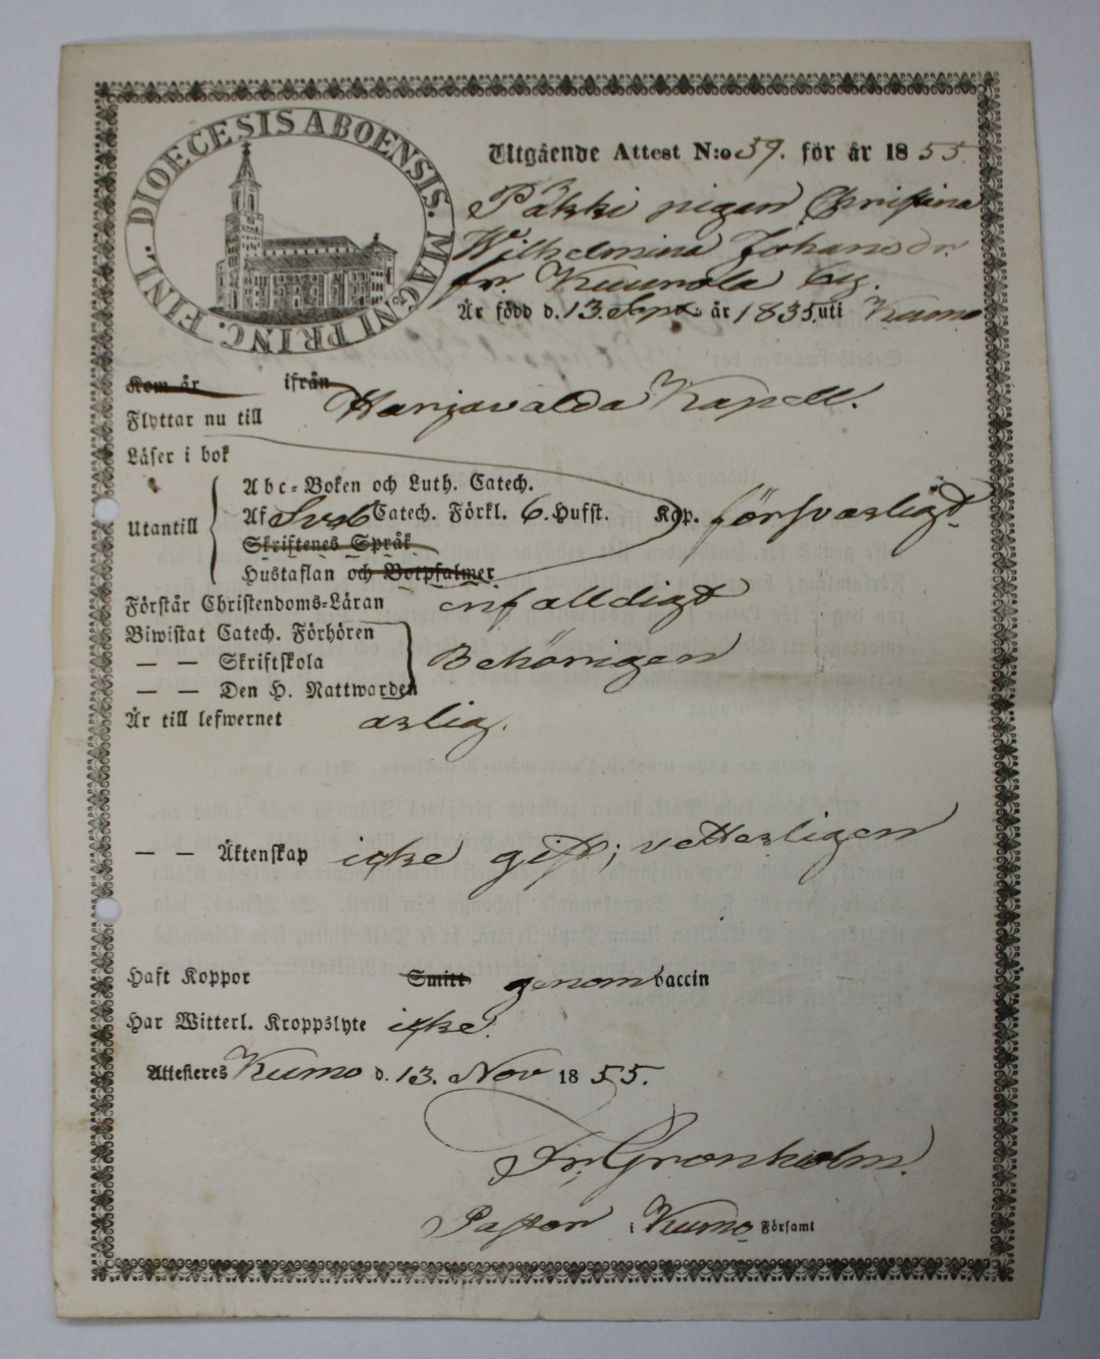 DIOECESIS ABOENSIS. MAGNI PRINC. FINL.
Utgående Attest N:o 39. för år 1855
Pätkki pigan Christina
Wilhelmina Johansdr.
fr. Kuurola by.
Är född d. 13. Sept. år 1835. uti Kumo
Kom år ifrån
Flyttar nu till Harjavalda Kapell.
Läser i bok
Abc-Boken och Luth. Catech.
Utantill Af Sveb Catech. Förkl. 6. Hufst. Kop. försvarligt
Skriftenes Språk
Hustaflan och Botpsalmer
Förstår Christendoms-Läran enfalldigt
Biwistat Catech. Förhören
— — Skriftskola Behörigen
— — Den H. Nattwarden
Är till lefwernet ärlig.
— — Äktenskap icke gift; vetterligen
Haft Koppor Smitt genom vaccin
Har Witterl. Kroppslyte icke.
Attesteres Kumo d. 13. Nov 1855.
Fr. Grönholm.
Pastor i Kumo Församl